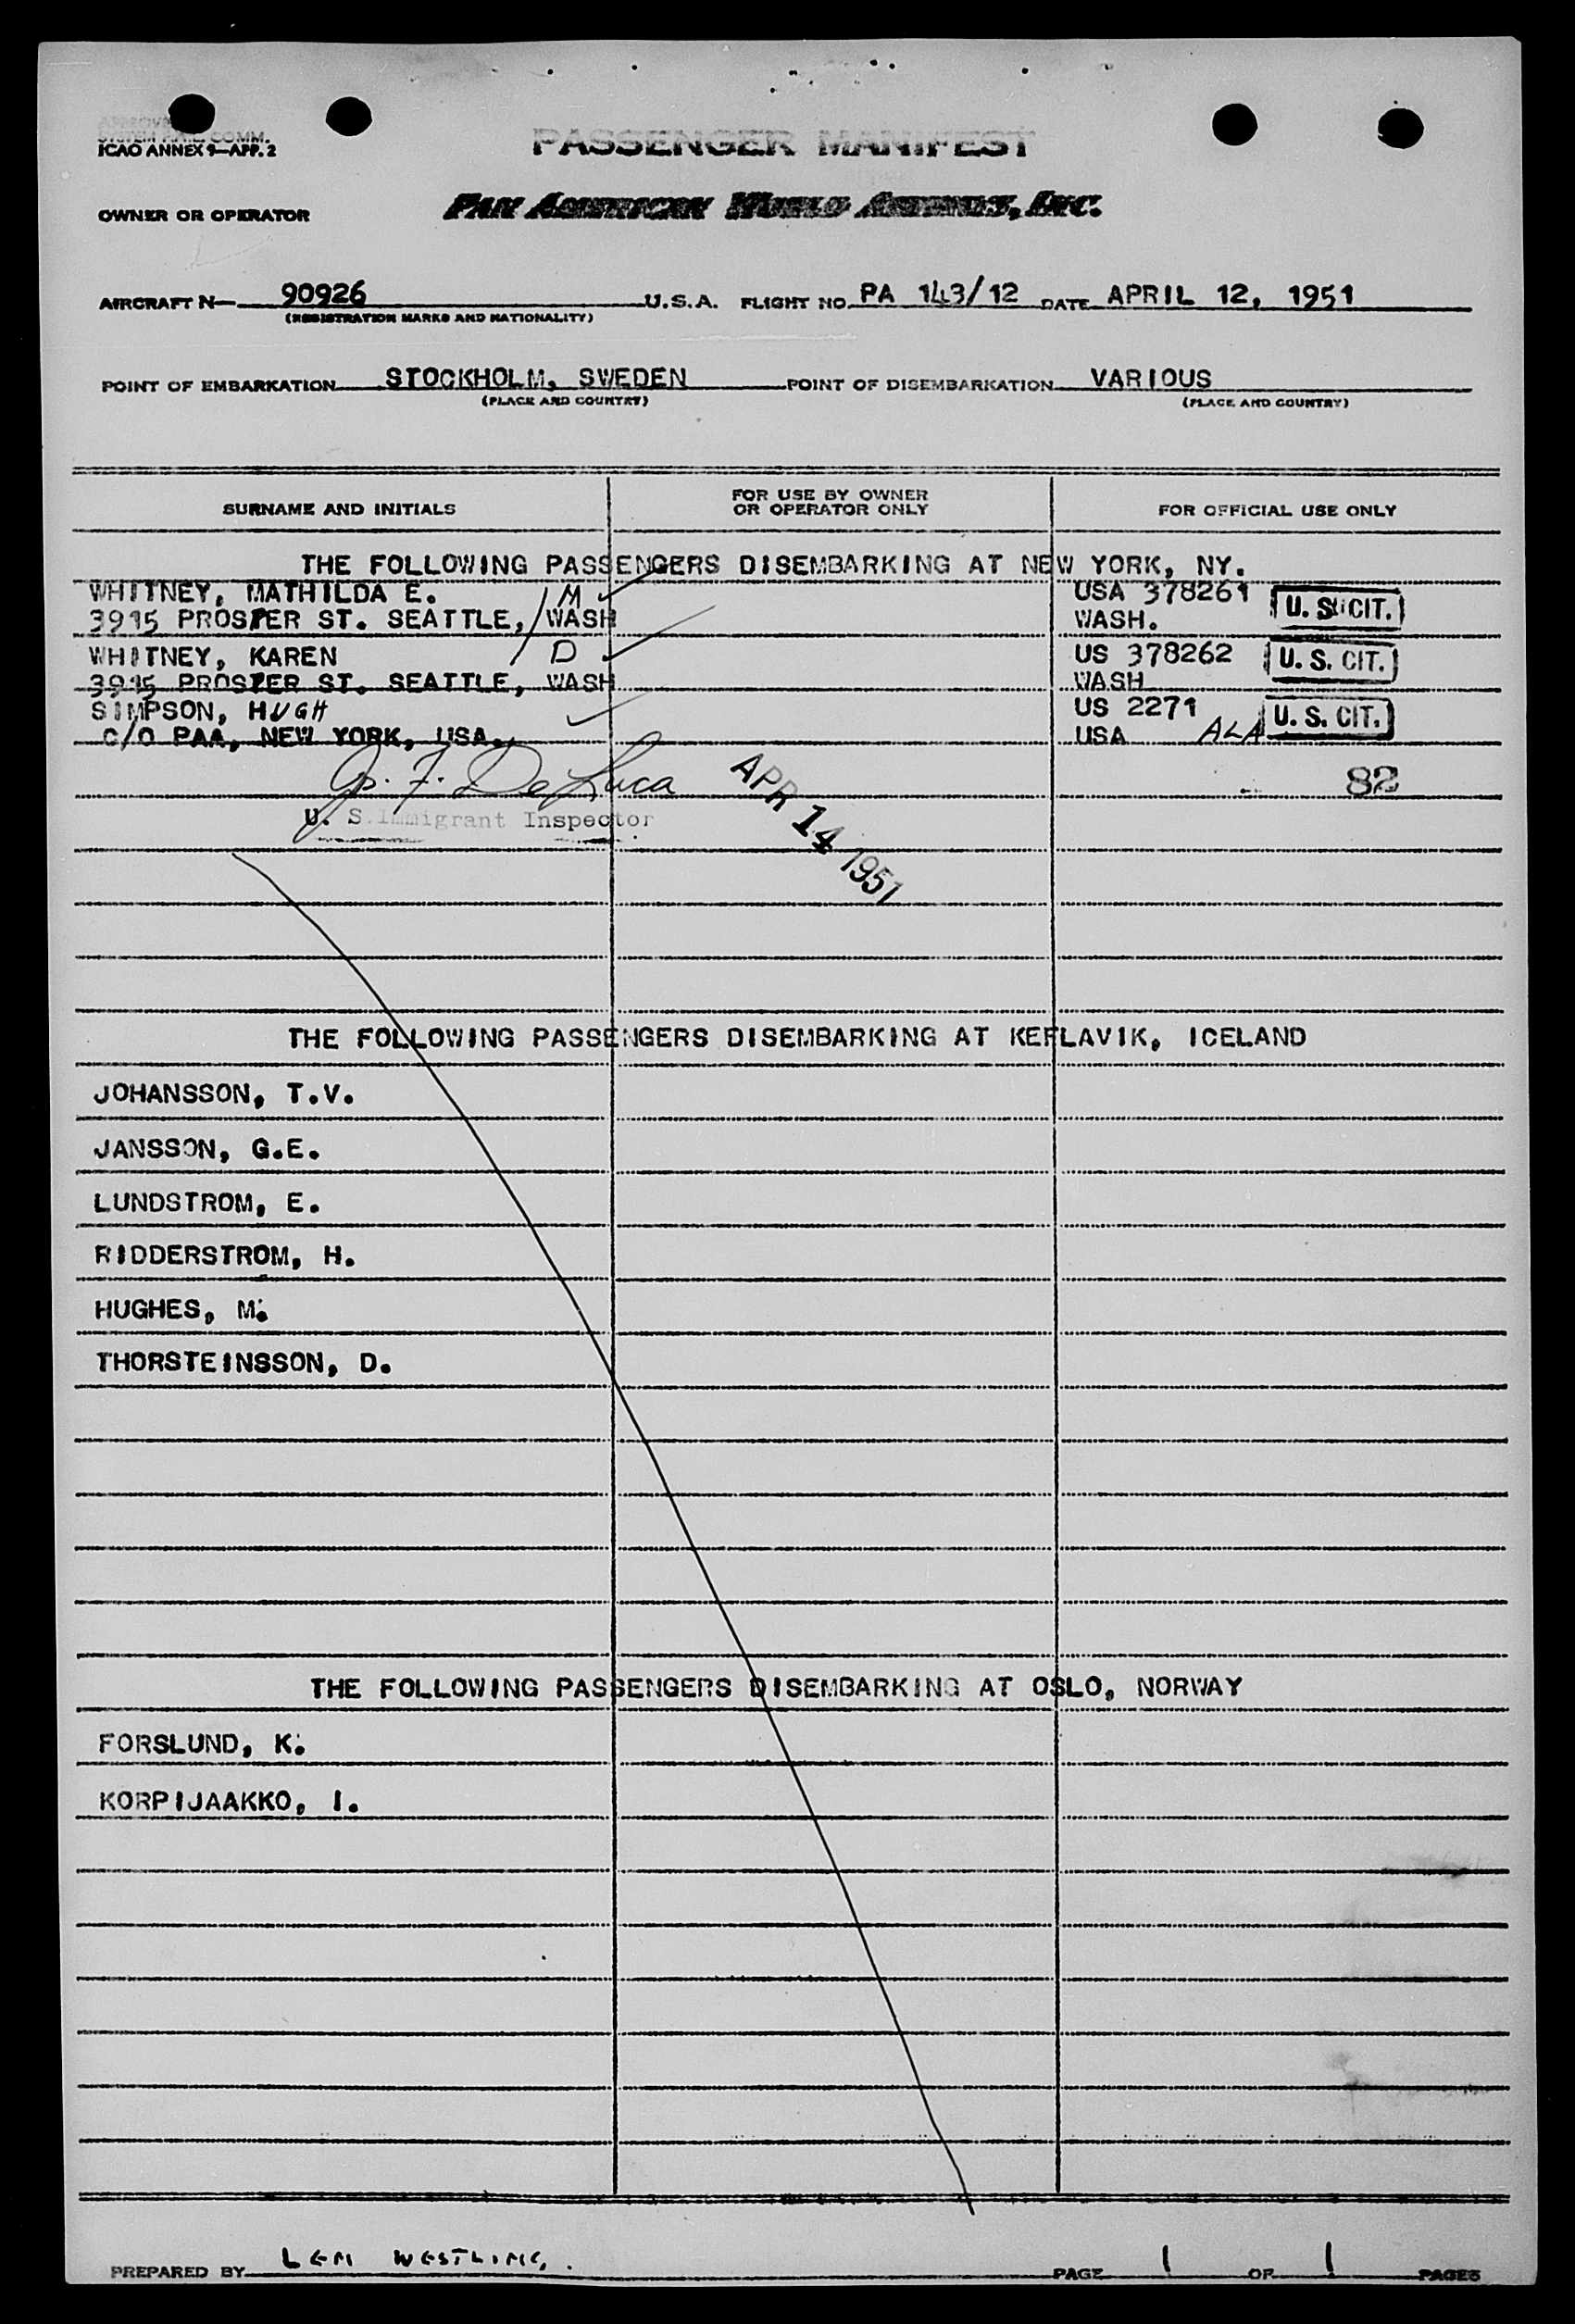 ICAO ANNEX 9—APP. 2
PASSENGER MANIFEST
OWNER OR OPERATOR PAN AMERICAN WORLD AIRWAYS, INC.
AIRCRAFT N— 90926 U.S.A. FLIGHT NO. PA 143/12 DATE APRIL 12, 1951
(REGISTRATION MARKS AND NATIONALITY)
POINT OF EMBARKATION STOCKHOLM, SWEDEN POINT OF DISEMBARKATION VARIOUS
(PLACE AND COUNTRY) (PLACE AND COUNTRY)
SURNAME AND INITIALS FOR USE BY OWNER OR OPERATOR ONLY FOR OFFICIAL USE ONLY
THE FOLLOWING PASSENGERS DISEMBARKING AT NEW YORK, NY.
WHITNEY, MATHILDA E. M USA 378261 U. S. CIT.
3915 PROSPER ST. SEATTLE, WASH WASH.
WHITNEY, KAREN D US 378262 U. S. CIT.
3915 PROSPER ST. SEATTLE, WASH WASH
SIMPSON, HUGH US 2271 U. S. CIT.
C/O PAA, NEW YORK, USA. USA ALA
J. F. DeLuca APR 14 1951 82
U. S. Immigrant Inspector
THE FOLLOWING PASSENGERS DISEMBARKING AT KEFLAVIK, ICELAND
JOHANSSON, T.V.
JANSSON, G.E.
LUNDSTROM, E.
RIDDERSTROM, H.
HUGHES, M.
THORSTEINSSON, D.
THE FOLLOWING PASSENGERS DISEMBARKING AT OSLO, NORWAY
FORSLUND, K.
KORPIJAAKKO, I.
PREPARED BY LEM WESTLING. PAGE 1 OF 1 PAGES